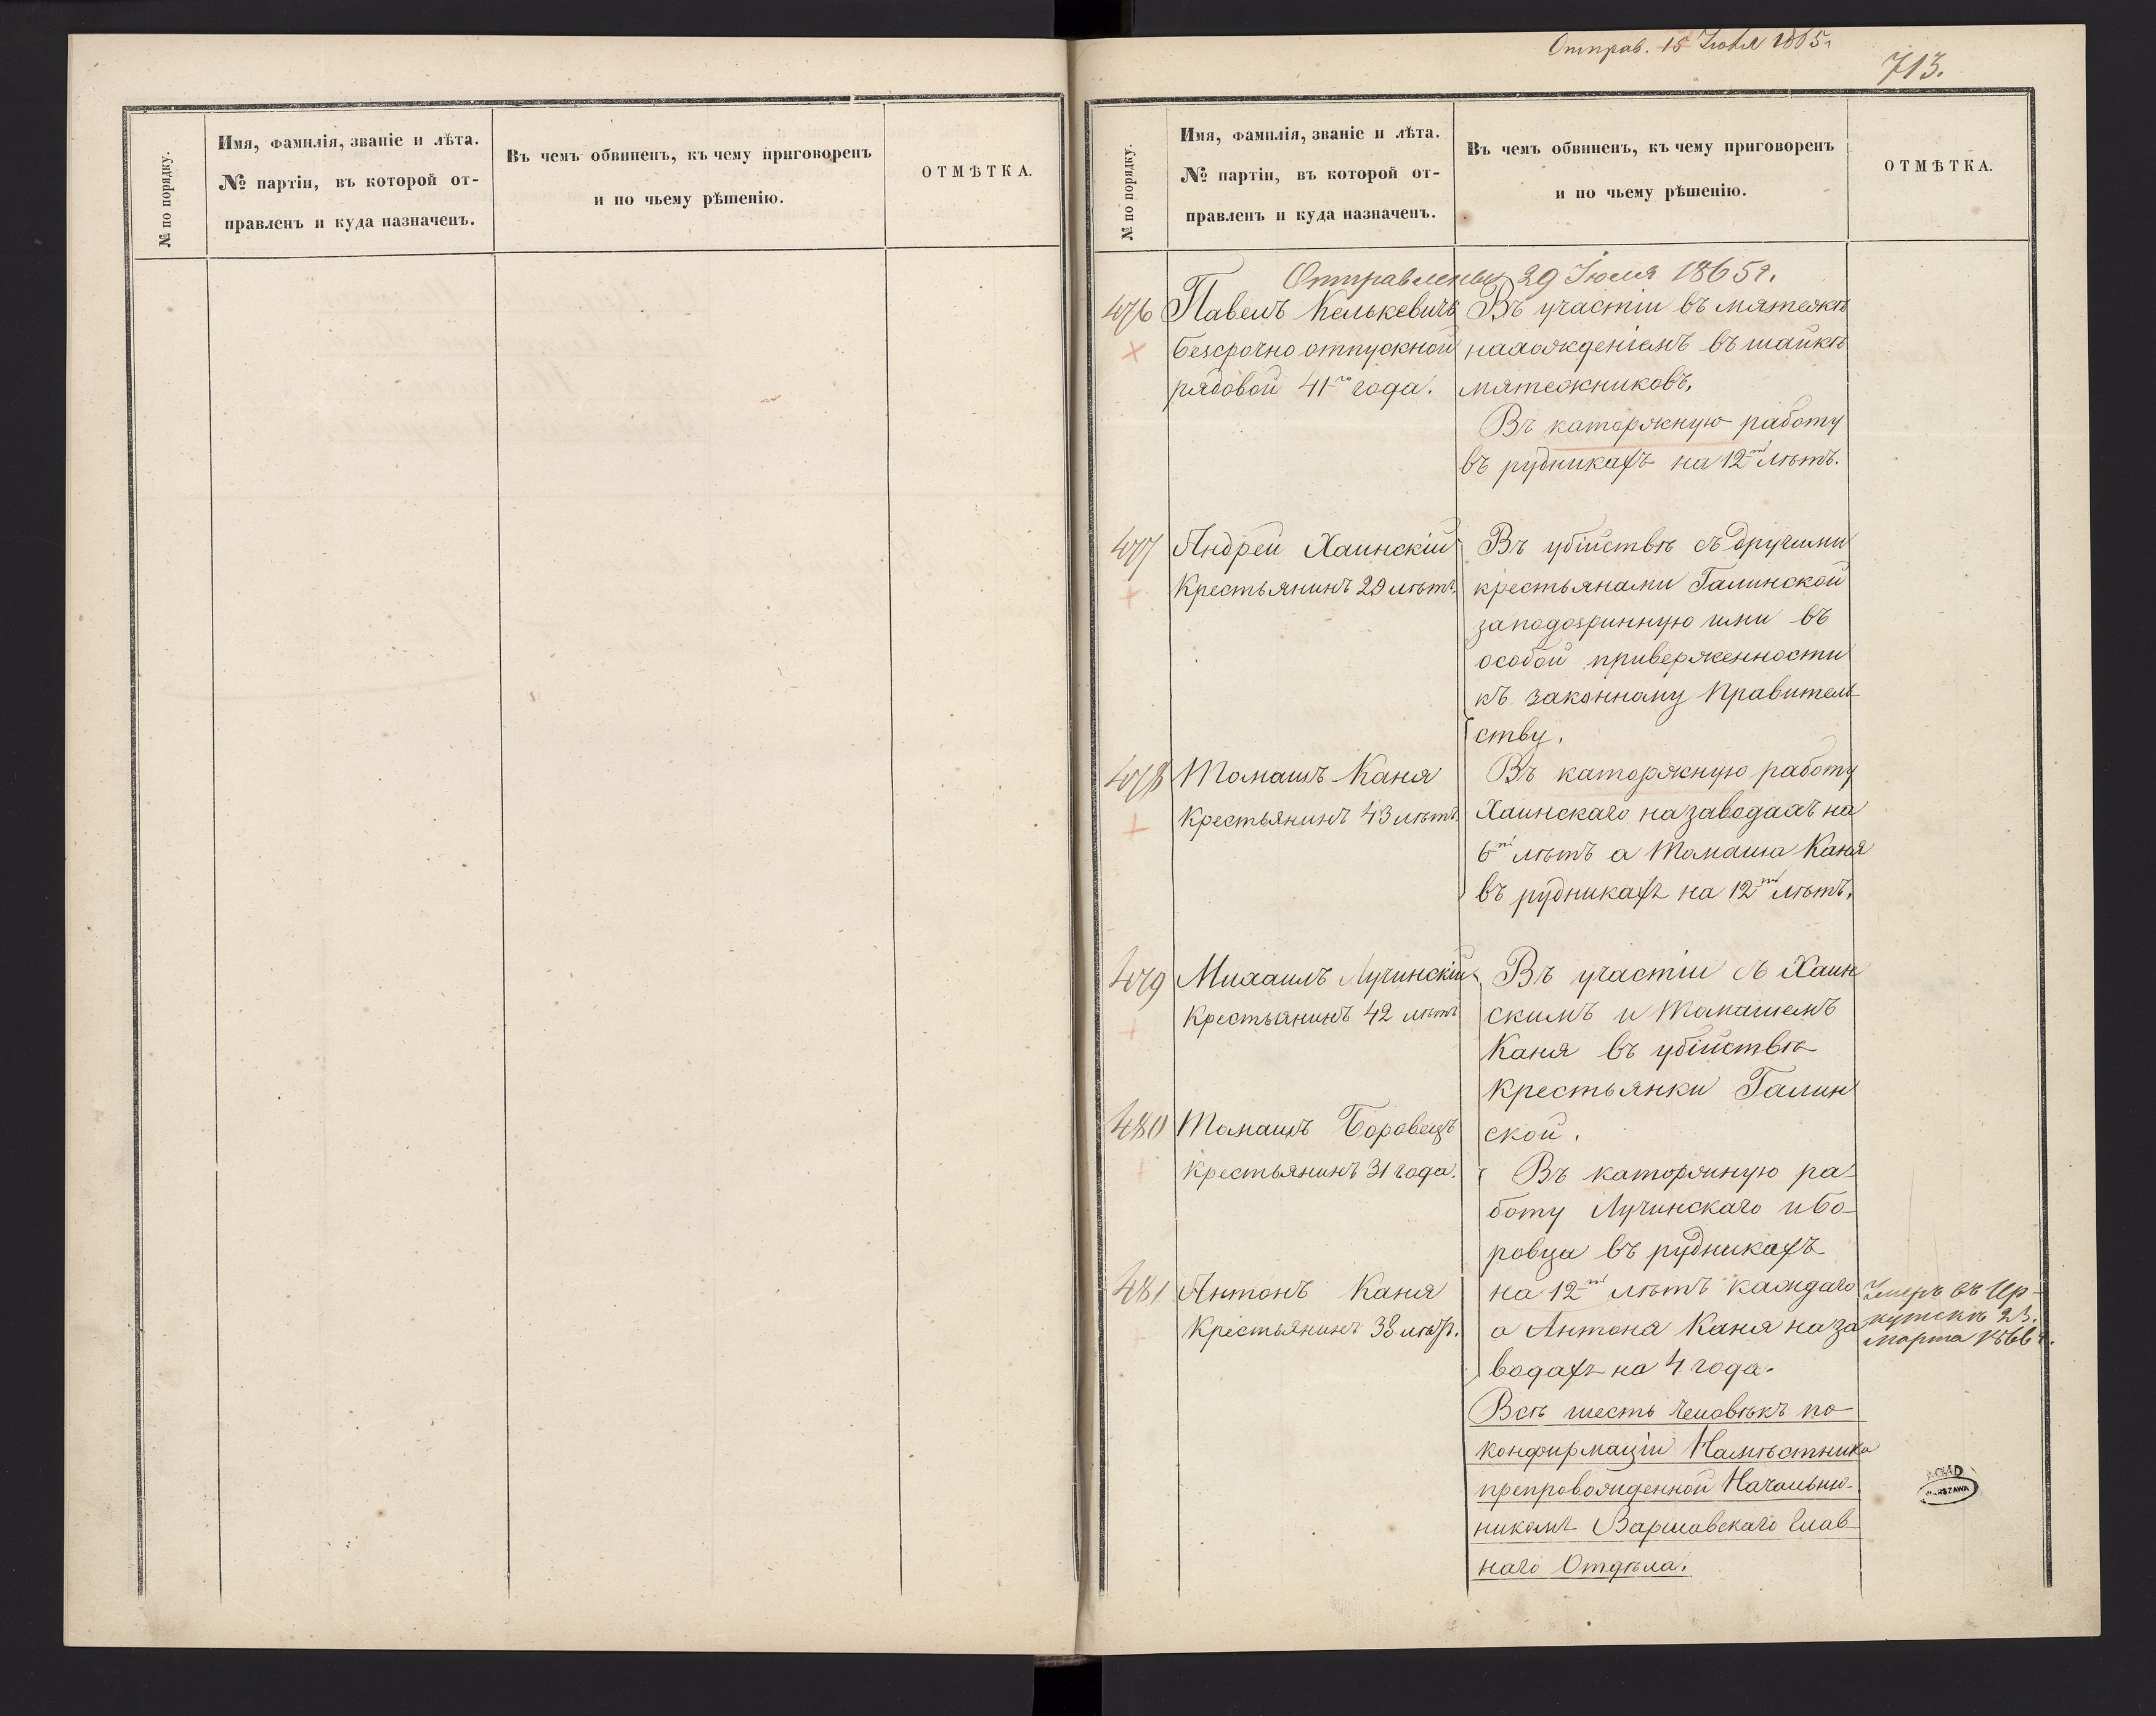 № по порядку.
Имя, фамилія, званіе и лѣта.
№ партіи, въ которой от-
правленъ и куда назначенъ.
Въ чемъ обвиненъ, къ чему приговоренъ
и по чьему рѣшенію.
ОТМѢТКА.
Отправ. 15 Іюля 1865 г
713.
№ по порядку.
Имя, фамилія, званіе и лѣта.
№ партіи, въ которой от-
правленъ и куда назначенъ.
Въ чемъ обвиненъ, къ чему приговоренъ
и по чьему рѣшенію.
ОТМѢТКА.
Отправлены 29 Іюля 1865 г.
476
Павелъ Келькевичъ
безсрочно отпускной
рядовой 41-го года.
Въ участіи въ мятежѣ
нахожденіемъ въ шайкѣ
мятежниковъ.
Въ каторжную работу
въ рудникахъ на 12-ть лѣтъ.
477
Андрей Хаинскій
Крестьянинъ 29 лѣтъ.
Въ убійствѣ съ другими
крестьянами Галинской
заподозринную ими въ
особой приверженности
къ законному Правитель
ству.
478
Томашъ Каня
Крестьянинъ 43 лѣтъ.
Въ каторжную работу
Хаинскаго на заводахъ на
6ть лѣтъ а Томаша Каня
въ рудникахъ на 12-ть лѣтъ.
479
Михаилъ Лучинскій
Крестьянинъ 42 лѣтъ
Въ участіи съ Хаин
скимъ и Томашемъ
Каня въ убійствѣ
Крестьянки Галин
ской.
480
Томашъ Боровецъ
Крестьянинъ 31 года.
Въ каторжную ра-
боту Лучинскаго и Бо-
ровца въ рудникахъ
на 12-ть лѣтъ каждаго
а Антона Каня на за
водахъ на 4 года.
481
Антонъ Каня
Крестьянинъ 38 лѣтъ.
Умеръ въ Ир-
кутскѣ 23.
Марта 1866 г.
Всѣ шесть человѣкъ по
конфирмаціи Намѣстника
препровожденной Начальни-
никомъ Варшавскаго Глав-
наго Отдѣла.
AGAD
WARSZAWA